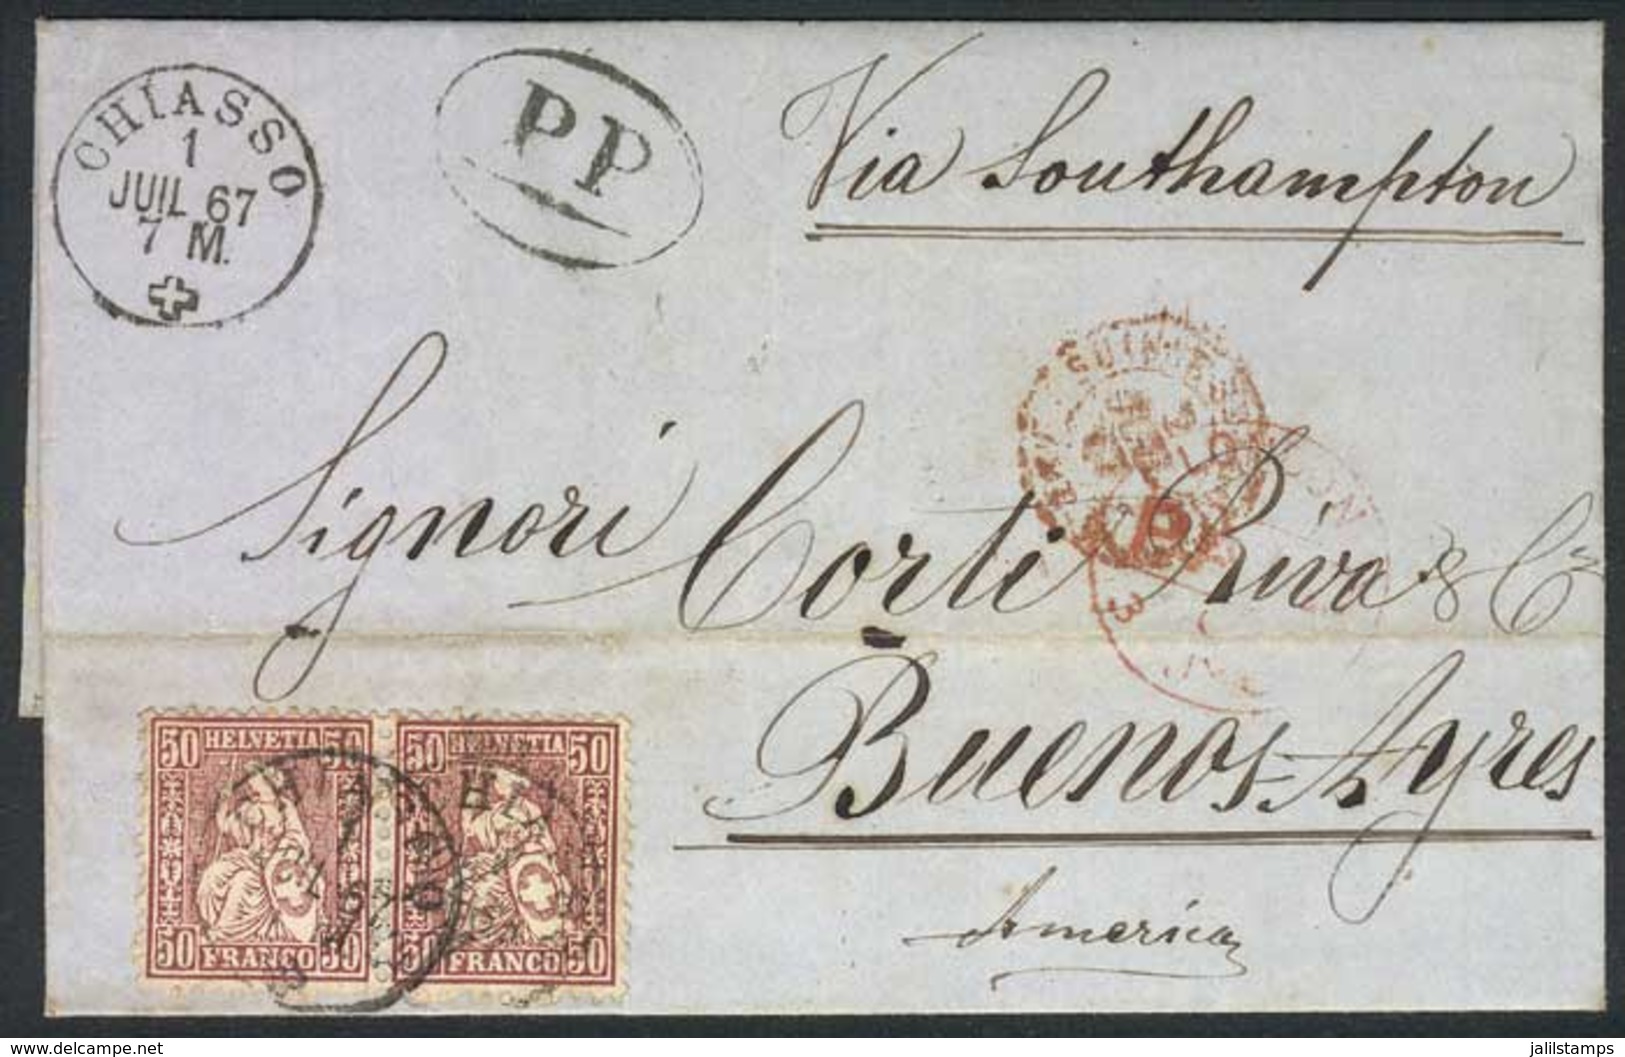 CHIASSO
1
JUIL 67
7 M.
PP
Via Southampton
Signori Corti Riva & C
Buenos-Ayres
America
P
3
50 HELVETIA 50
50 FRANCO 50
50 HELVETIA 50
50 FRANCO 50
delcampe.net
jalilstamps